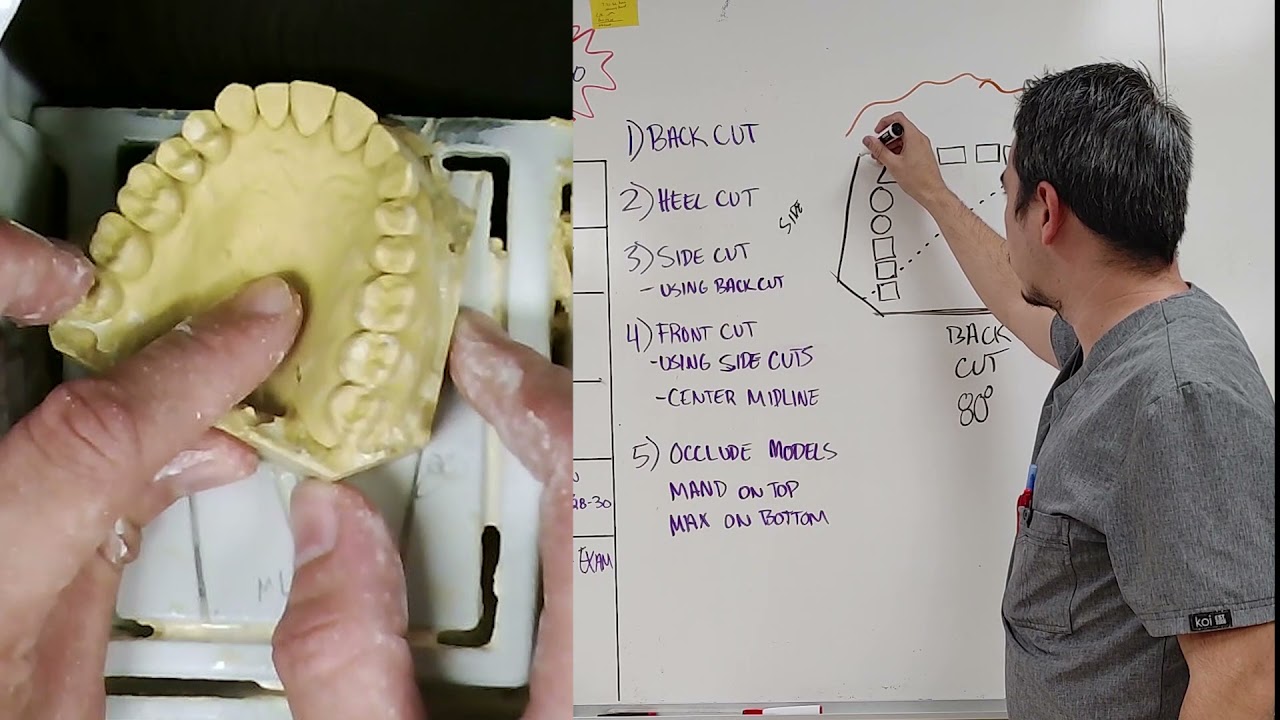 1) BACK CUT
2) HEEL CUT
3) SIDE CUT
- USING BACK CUT
4) FRONT CUT
- USING SIDE CUTS
- CENTER MIDLINE
5) OCCLUDE MODELS
MAND ON TOP
MAX ON BOTTOM
SIDE
BACK
CUT
80°
28-30
EXAM
koi